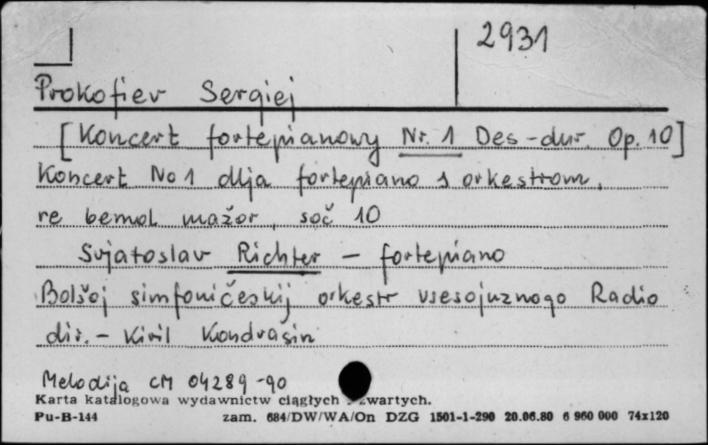 2931
Prokofiev Sergiej
[Koncert fortepianowy Nr. 1 Des-dur. Op. 10]
Koncert No 1 dlja fortepiano s orkestrom,
re bemol mažor, soč 10
Svjatoslav Richter – fortepiano
Bolšoj simfoničeskij orkestr vsesojuznogo Radio
dir. – Kiril Kondrašin
Melodija CM 04289-90
Karta katalogowa wydawnictw ciągłych i zwartych.
Pu-B-144 zam. 684/DW/WA/On DZG 1501-1-290 20.06.80 6 960 000 74x120